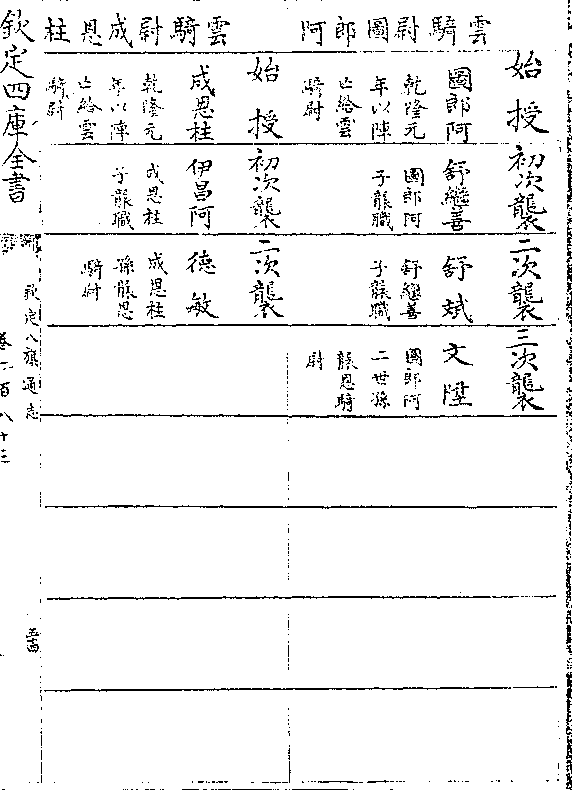 雲騎尉圖郎阿
始授
圖郎阿
乾隆元
年以陣
亡給雲
騎尉
初次襲
舒繼善
圖郎阿
子襲職
二次襲
舒斌
舒繼善
子襲職
三次襲
文陞
圖郎阿
二世孫
襲恩騎
尉
雲騎尉成恩柱
始授
成恩柱
乾隆元
年以陣
亡給雲
騎尉
初次襲
伊昌阿
成恩柱
子襲職
二次襲
德敏
成恩柱
孫襲恩
騎尉
欽定四庫全書
欽定八旗通志
卷二百八十三
五十四